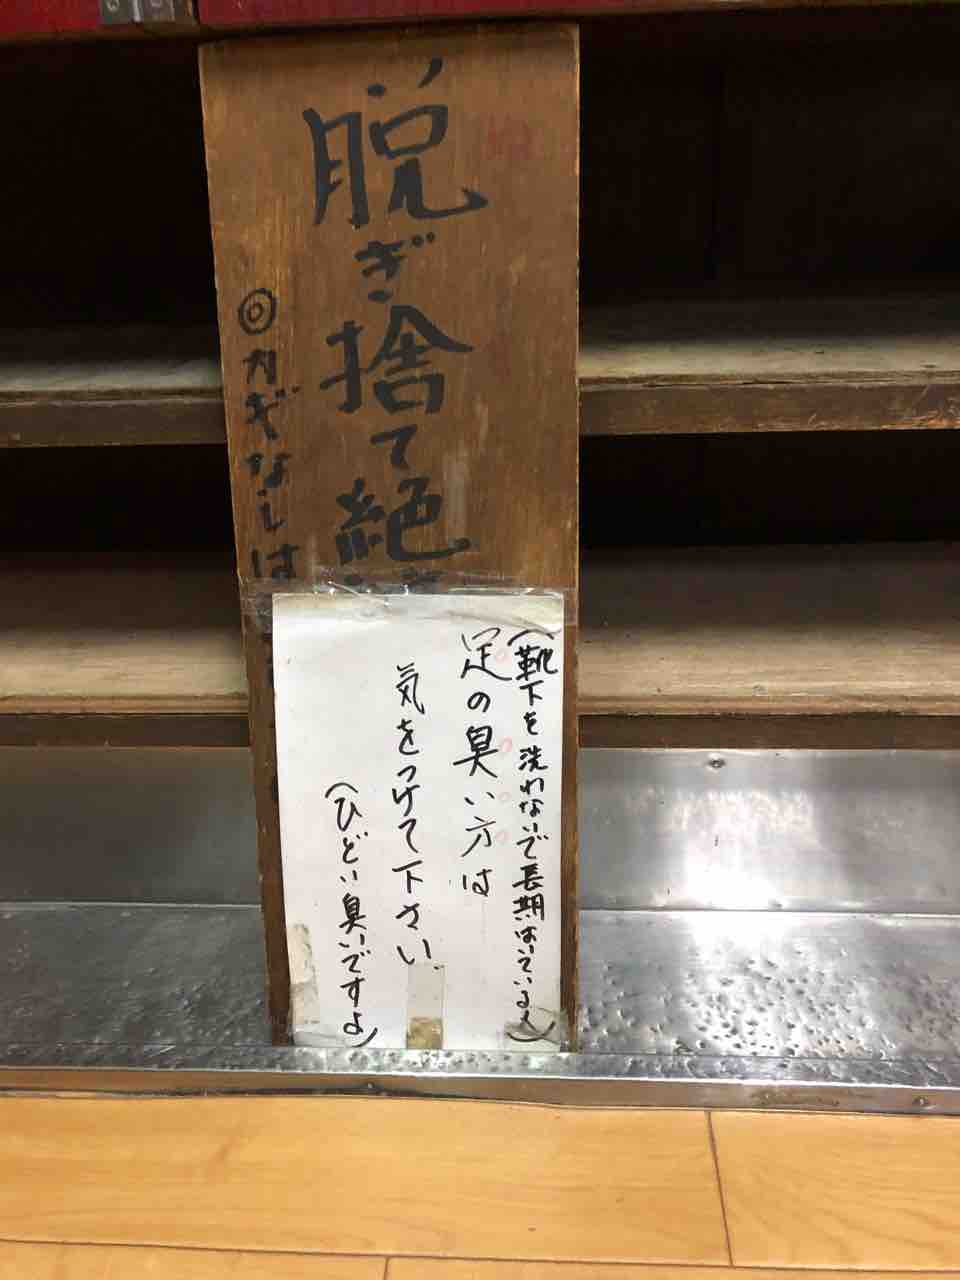 脱ぎ捨て絶
◎カギなしは
(靴下を洗わないで長期はいている人)
足の臭い方は
気をつけて下さい
(ひどい臭いですよ)